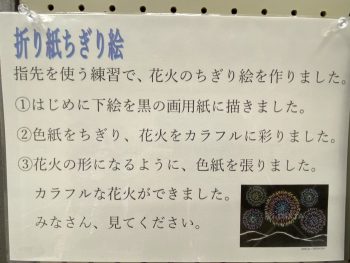 折り紙ちぎり絵
指先を使う練習で、花火のちぎり絵を作りました。
①はじめに下絵を黒の画用紙に描きました。
②色紙をちぎり、花火をカラフルに彩りました。
③花火の形になるように、色紙を張りました。
カラフルな花火ができました。
みなさん、見てください。